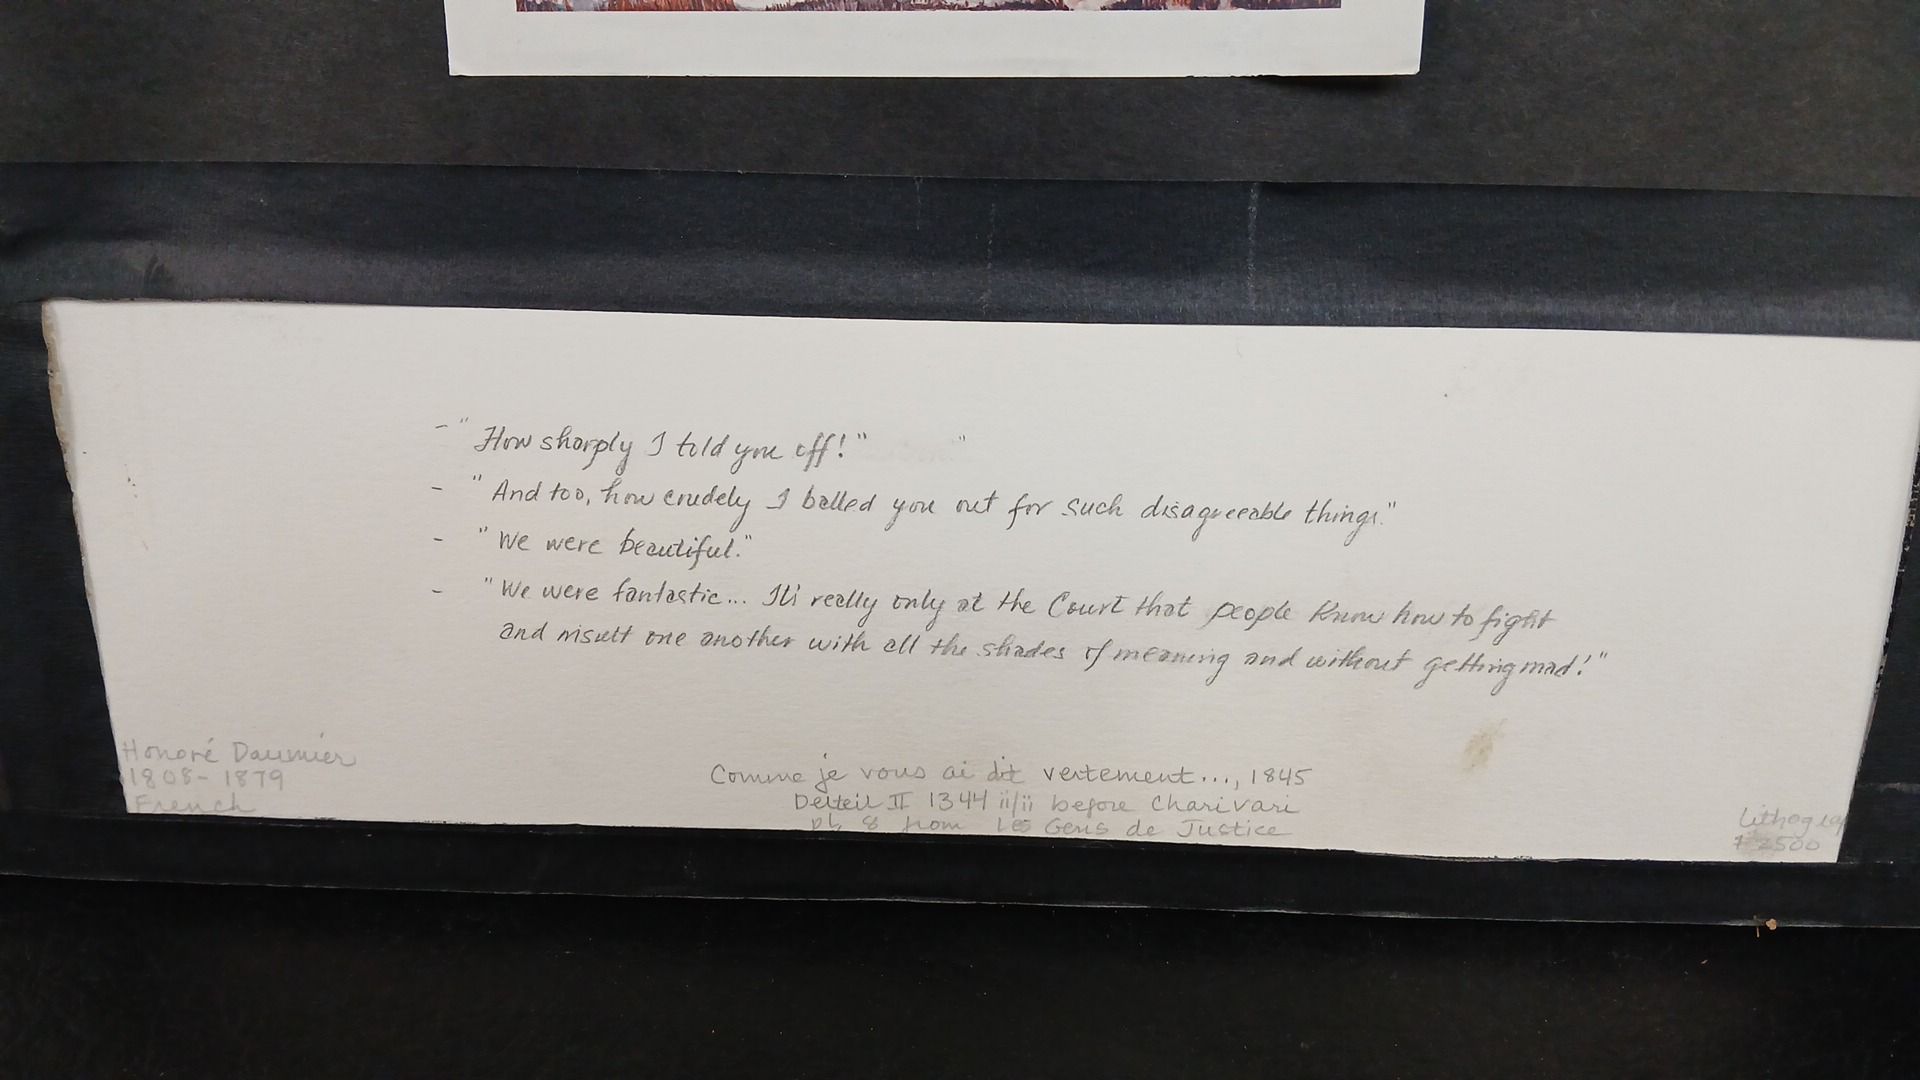 - "How sharply I told you off!" "
- "And too, how crudely I balled you out for such disagreeable things."
- "We were beautiful."
- "We were fantastic... It's really only at the Court that people know how to fight
and insult one another with all the shades of meaning and without getting mad!"
Honoré Daumier
1808-1879
French
Comme je vous ai dit vertement..., 1845
Delteil II 1344 ii/ii before Charivari
pl. 8 from Les Gens de Justice
Lithogra